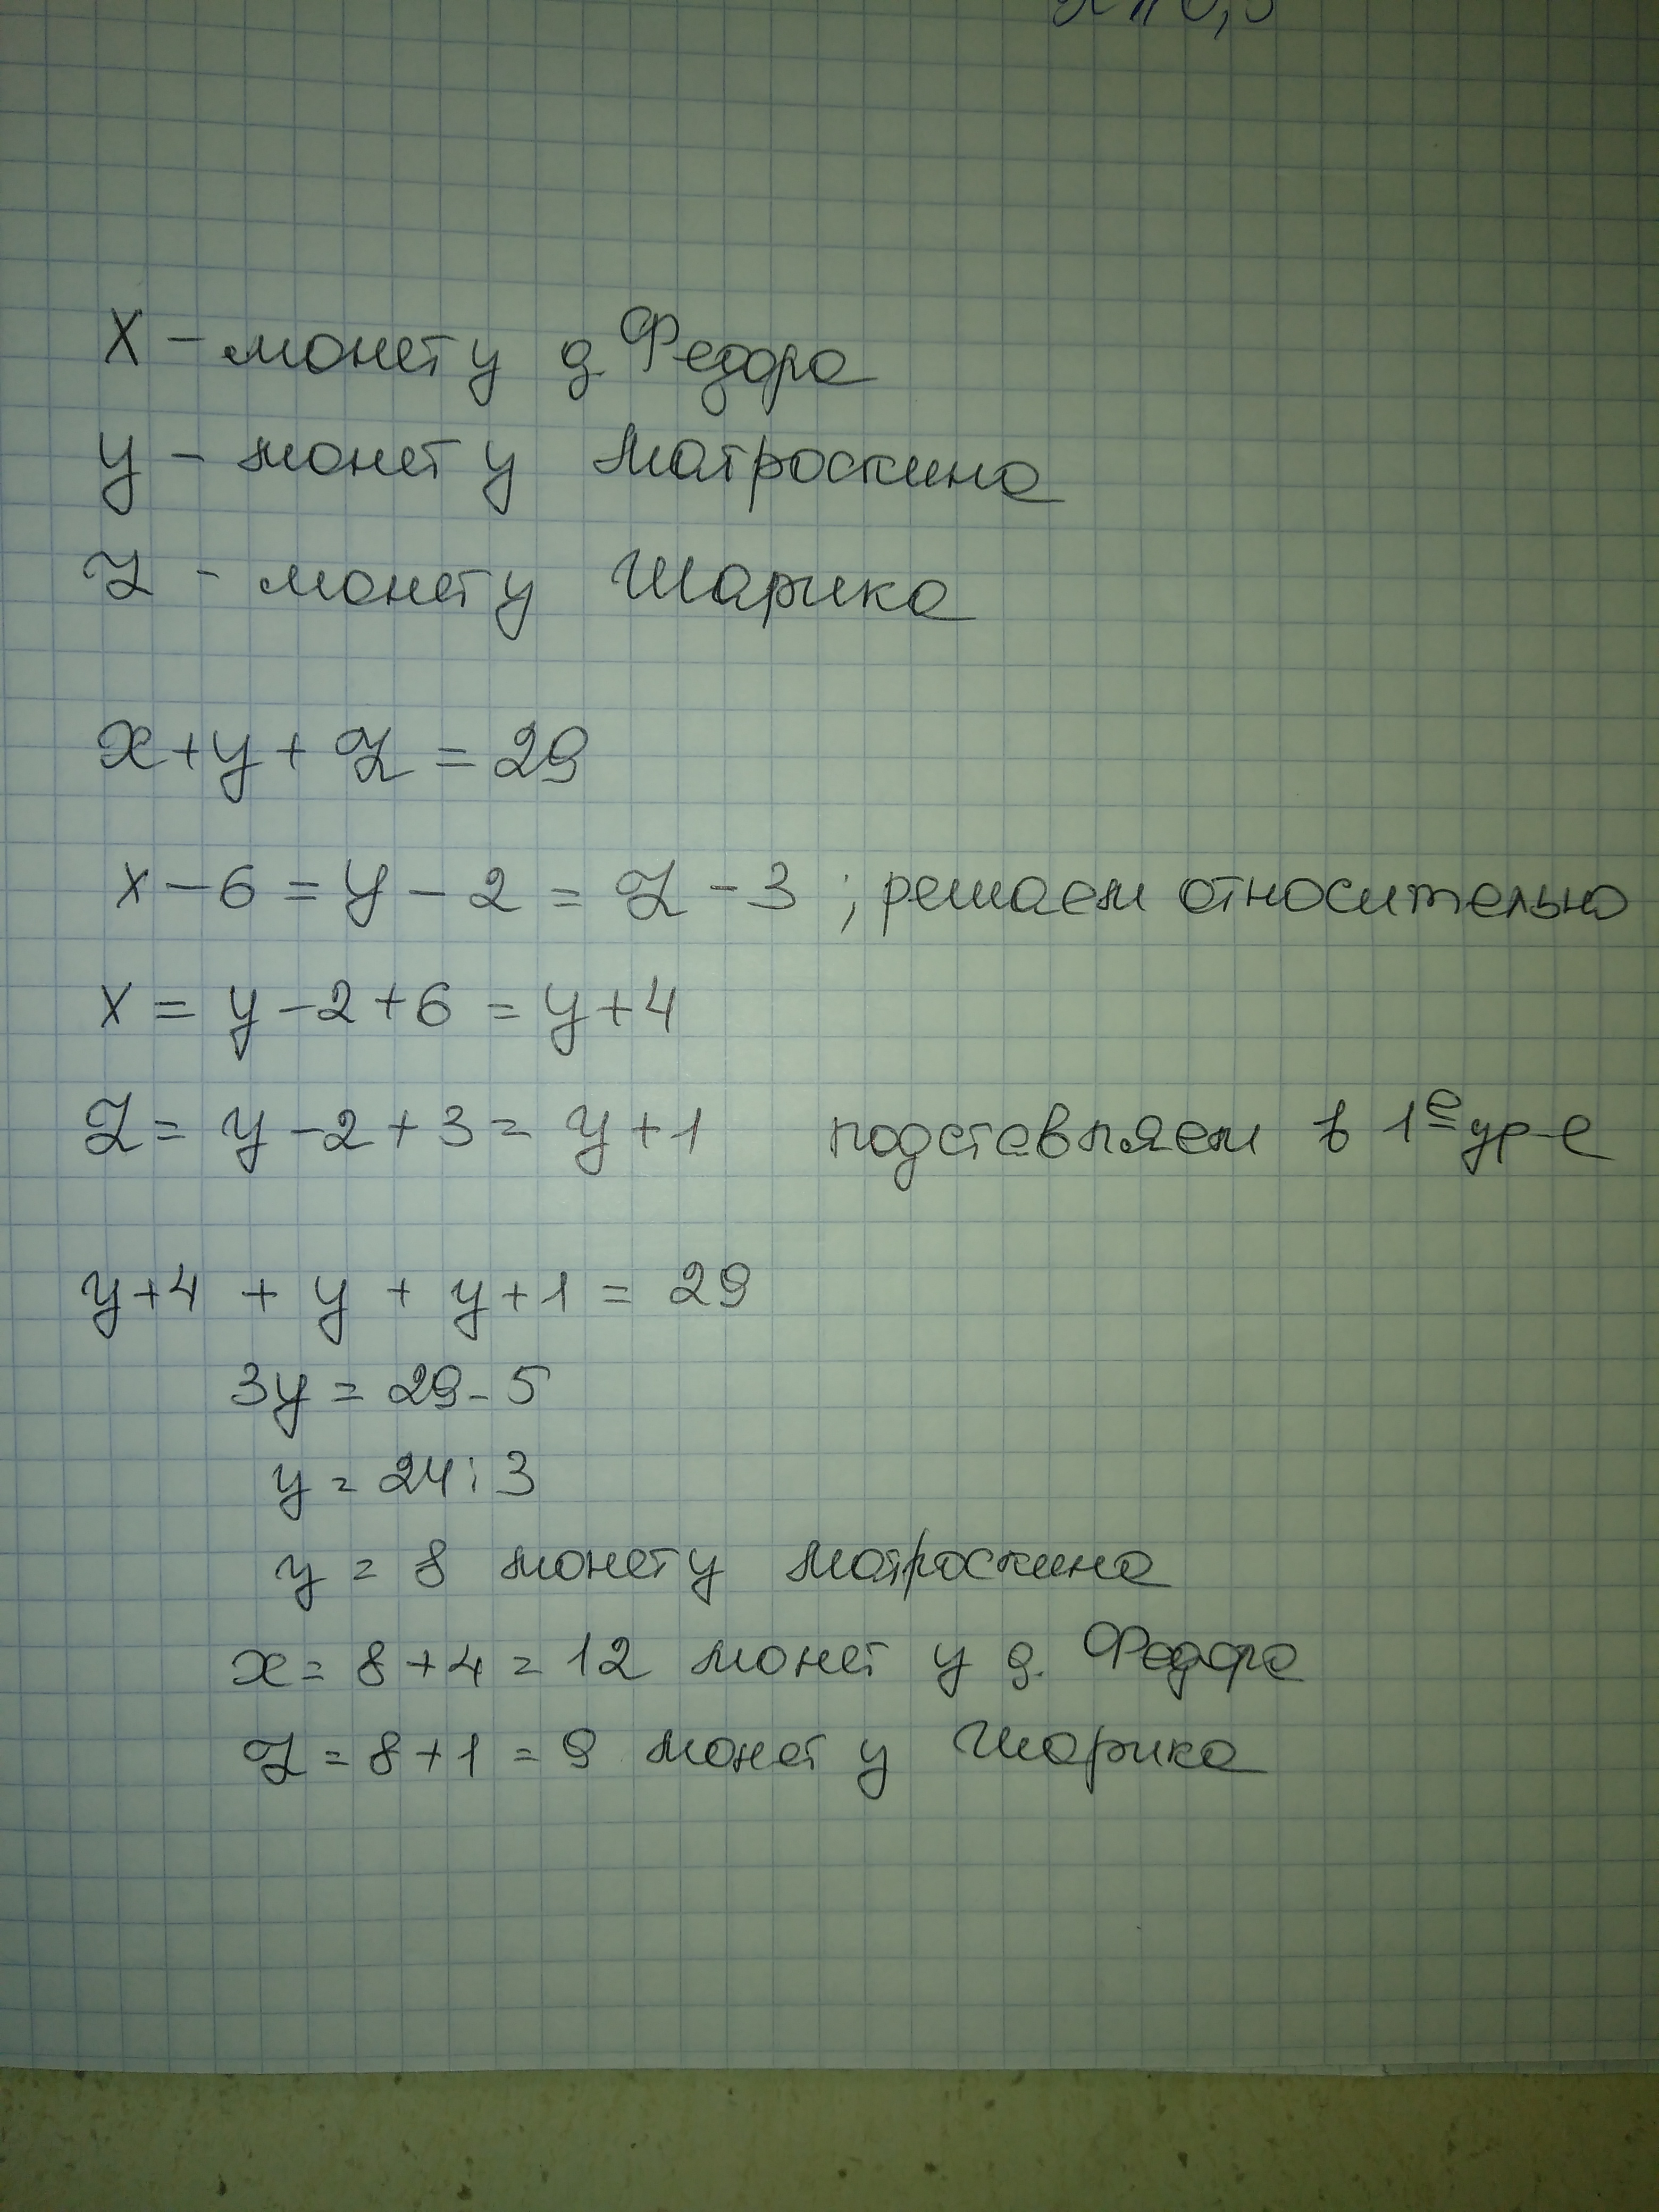 X - монет у д. Федора
y - монет у Матроскина
Z - монет у Шарика
x + y + Z = 29
x - 6 = y - 2 = Z - 3 ; решаем относительно
x = y - 2 + 6 = y + 4
Z = y - 2 + 3 = y + 1 подставляем в 1е ур-е
y + 4 + y + y + 1 = 29
3y = 29 - 5
y = 24 : 3
y = 8 монет у Матроскина
x = 8 + 4 = 12 монет у д. Федора
Z = 8 + 1 = 9 монет у Шарика